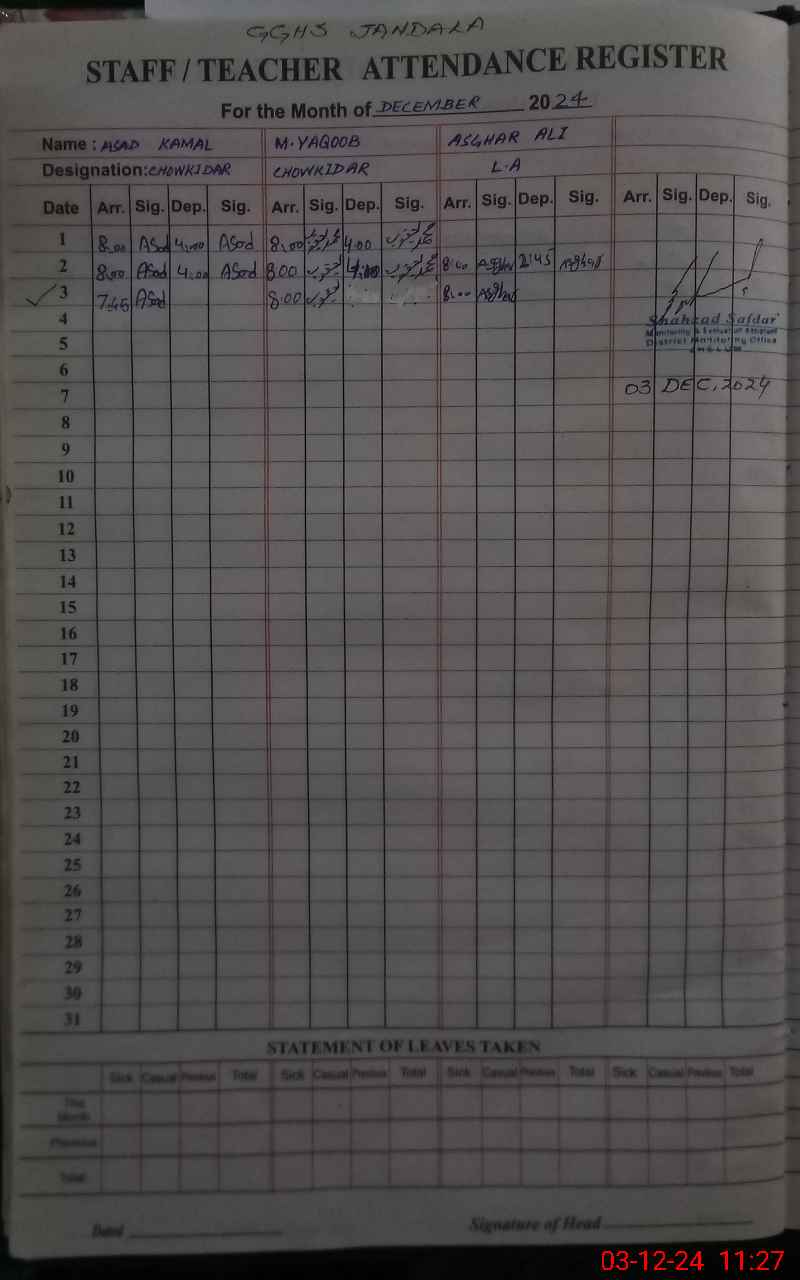 GGHS JANDALA
STAFF / TEACHER ATTENDANCE REGISTER
For the Month of DECEMBER 2024
Name : ASAD KAMAL M.YAQOOB ASGHAR ALI
Designation: CHOWKIDAR CHOWKIDAR L.A
Date Arr. Sig. Dep. Sig. Arr. Sig. Dep. Sig. Arr. Sig. Dep. Sig. Arr. Sig. Dep. Sig.
1 8.00 Asad 4.00 Asad 8.00 محمد یعقوب 4.00 محمد یعقوب
2 8.00 Asad 4.00 Asad 8.00 یعقوب 4.00 محمد یعقوب 8.00 Asghar 2:45 Asghar
3 7.45 Asad 8.00 یعقوب 8.00 Asghar
4 Shahzad Safdar
Monitoring & Evaluation Assistant
5 District Monitoring Office
JHELUM
6
7 03 DEC, 2024
8
9
10
11
12
13
14
15
16
17
18
19
20
21
22
23
24
25
26
27
28
29
30
31
STATEMENT OF LEAVES TAKEN
Sick Casual Previous Total Sick Casual Previous Total Sick Casual Previous Total Sick Casual Previous Total
This Month
Previous
Total
Dated
Signature of Head
03-12-24 11:27